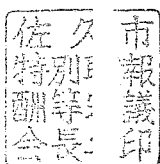 佐久市
特別報
酬等議
会長印